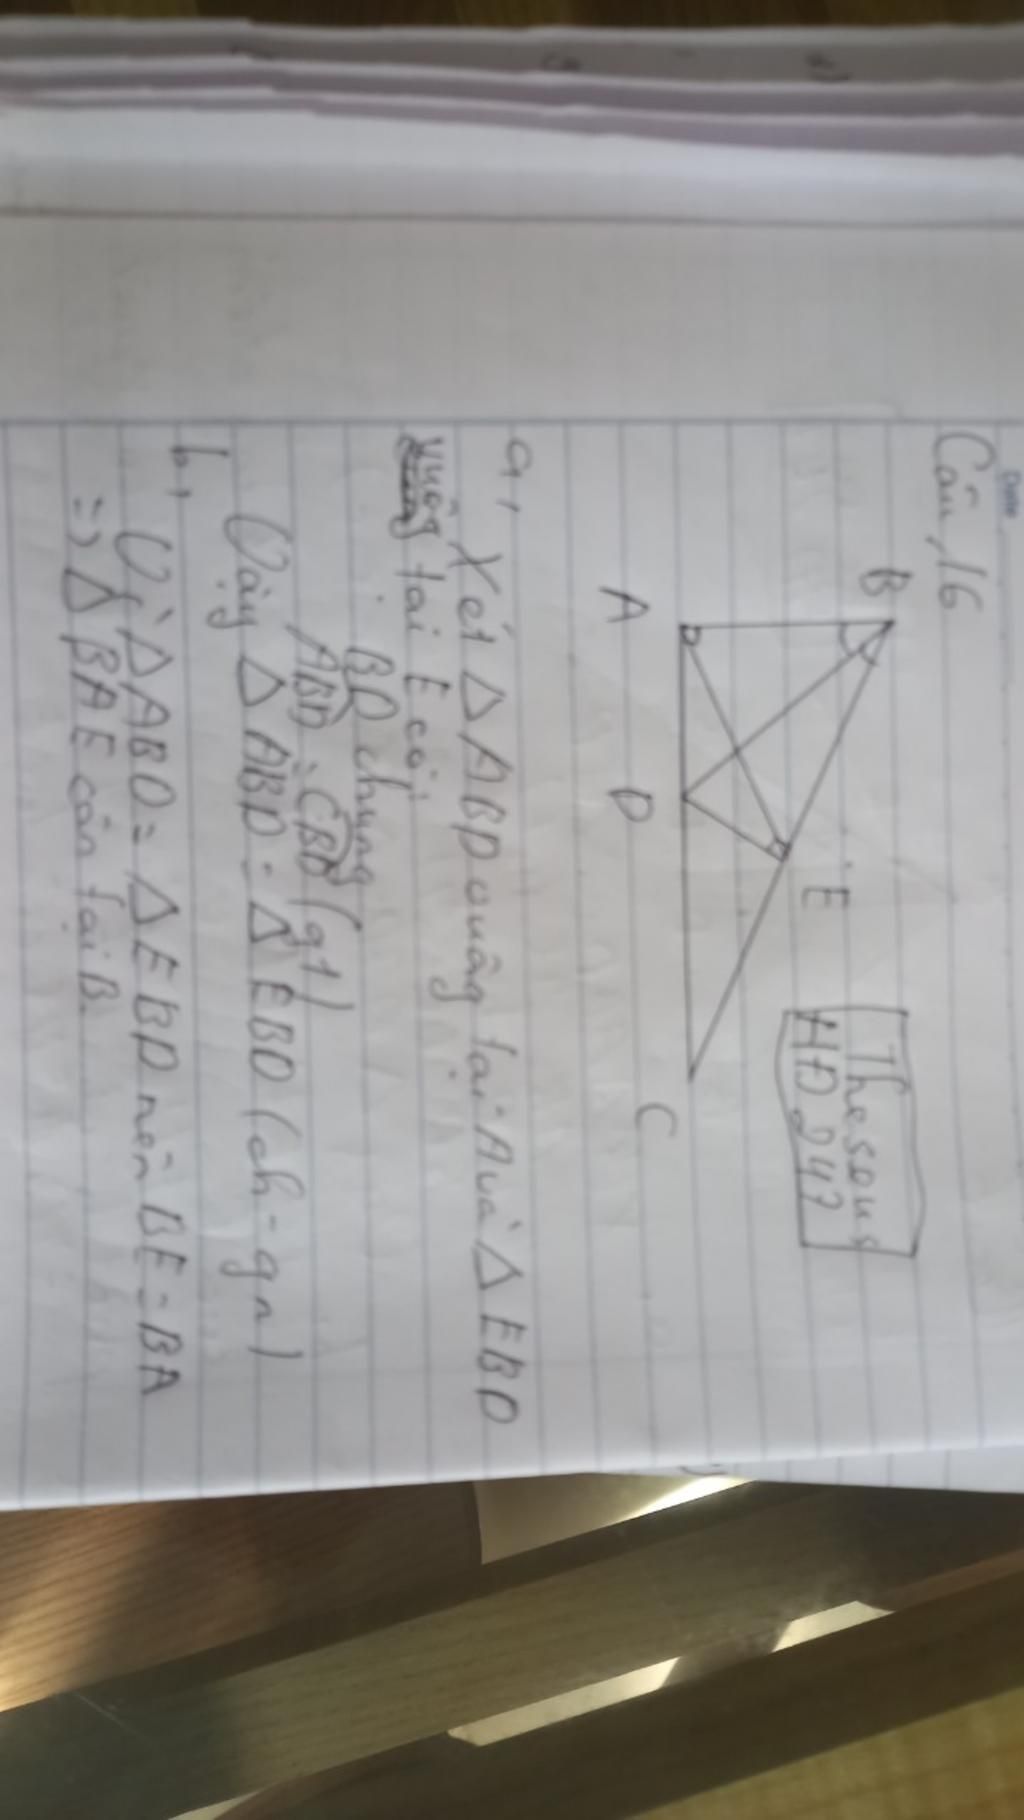 Date
Câu, 16
B
E
Thesous
HĐ 247
A
D
C
a,
Xét △ABD vuông tại A và △EBD
vuông tại E có:
BD chung
ABD = CBD (gt)
Vậy △ABD = △EBD (ch-gn)
b,
Vì △ABD = △EBD nên BE = BA
=> △BAE cân tại B.